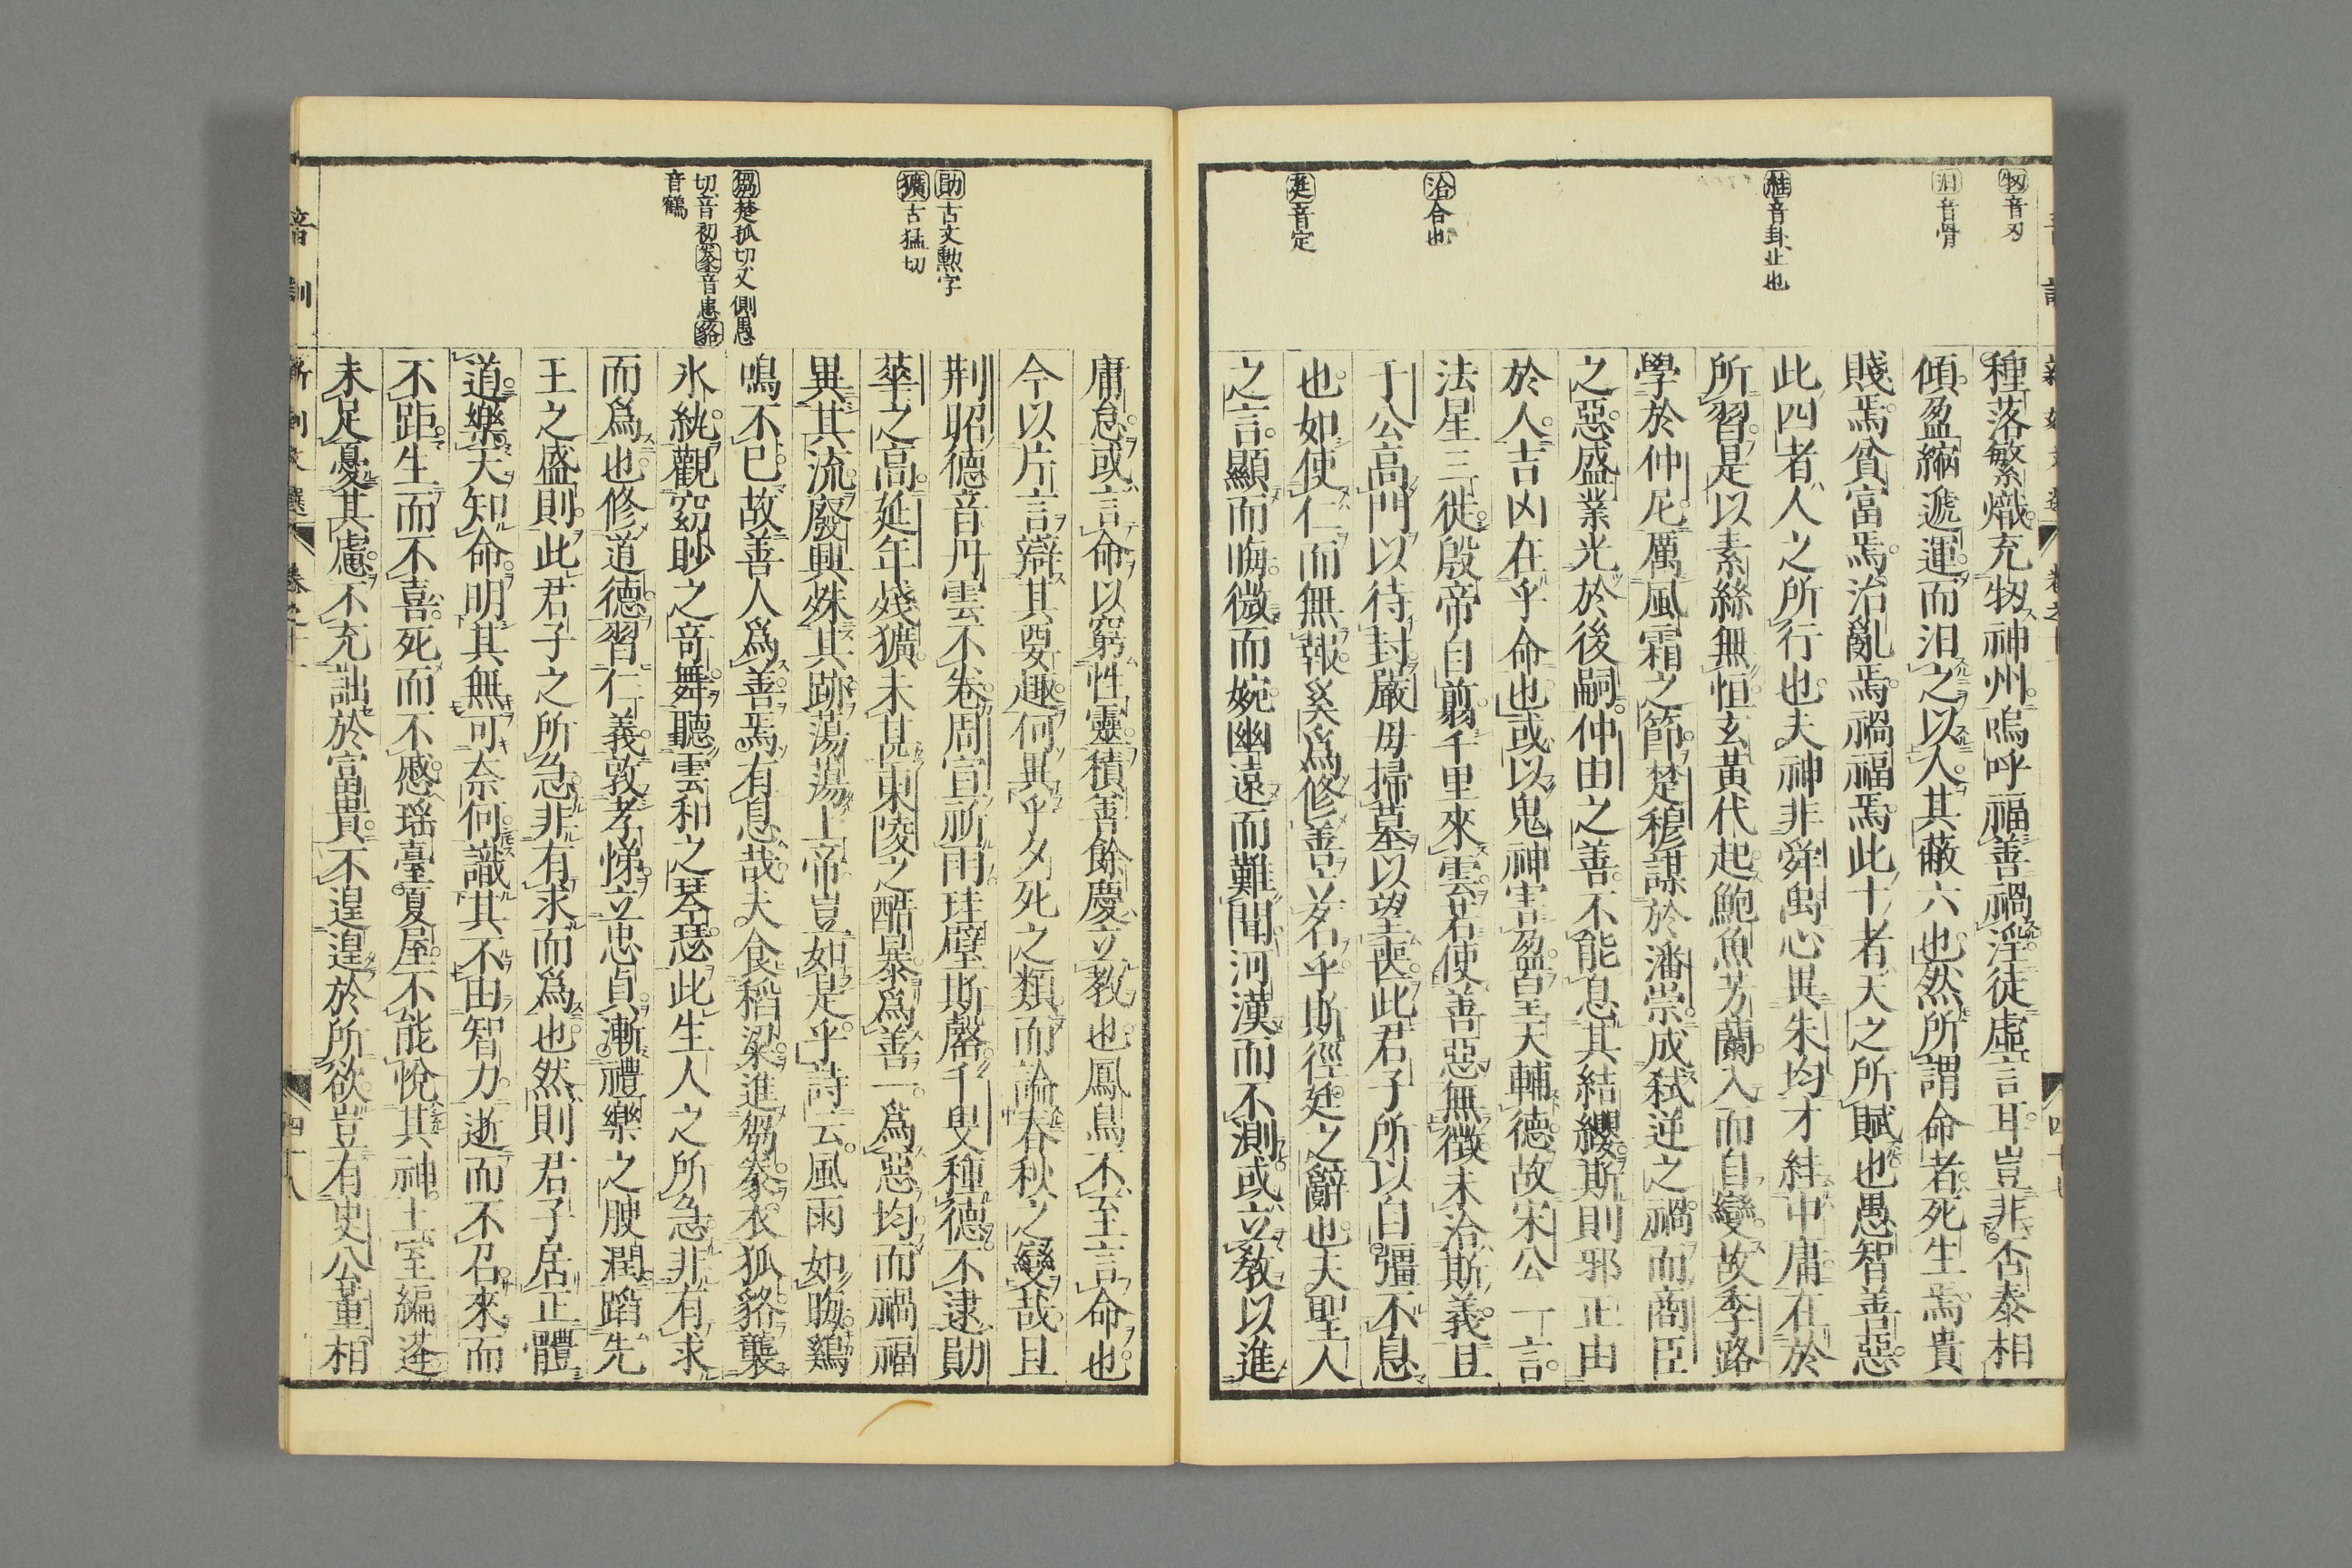 牣音刃
汩音骨
絓音卦止也
洽合也
莛音定
種落繁熾充牣神州嗚呼福善禍淫徒虛言耳豈非否泰相
傾盈縮遞運而汨之以人其蔽六也然所謂命者死生焉貴
賤焉貧富焉治亂焉禍福焉此十者天之所賦也愚智善惡
此四者人之所行也夫神非舜禹心異朱均才絓中庸在於
所習是以素絲無恒玄黃代起鮑魚芳蘭入而自變故季路
學於仲尼厲風霜之節楚穆謀於潘崇成弒逆之禍而商臣
之惡盛業光於後嗣仲由之善不能息其結纓斯則邪正由
於人吉凶在乎命也或以鬼神害盈皇天輔德故宋公一言
法星三徙殷帝自翦千里來雲若使善惡無徵未洽斯義且
于公高門以待封嚴母掃墓以望喪此君子所以自彊不息
也如使仁而無報奚爲修善立名乎斯徑莛之辭也夫聖人
之言顯而晦微而婉幽遠而難聞河漢而不測或立敎以進
勛古文勲字
獷古猛切
芻楚孤切又側愚
切音初豢音患貉
音鶴
庸怠或言命以窮性靈積善餘慶立敎也鳳鳥不至言命也
今以片言辯其要趣何異乎夕死之類而論春秋之變哉且
荆昭德音丹雲不卷周宣祈雨珪璧斯罄于叟種德不逮勛
華之高延年殘獷未甚東陵之酷暴爲善一爲惡均而禍福
異其流廢興殊其跡蕩蕩上帝豈如是乎詩云風雨如晦鷄
鳴不已故善人爲善焉有息哉夫食稻梁進芻豢衣狐貉襲
氷紈觀窈眇之奇舞聽雲和之琴瑟此生人之所急非有求
而爲也修道德習仁義敦孝悌立忠貞漸禮樂之腴潤蹈先
王之盛則此君子之所急非有求而爲也然則君子居正體
道樂天知命明其無可奈何識其不由智力逝而不召來而
不距生而不喜死而不慼瑶臺夏屋不能悅其神土室編蓬
未足憂其慮不充詘於富貴不遑遑於所欲豈有史公董相
音訓
卷之十一
四十八